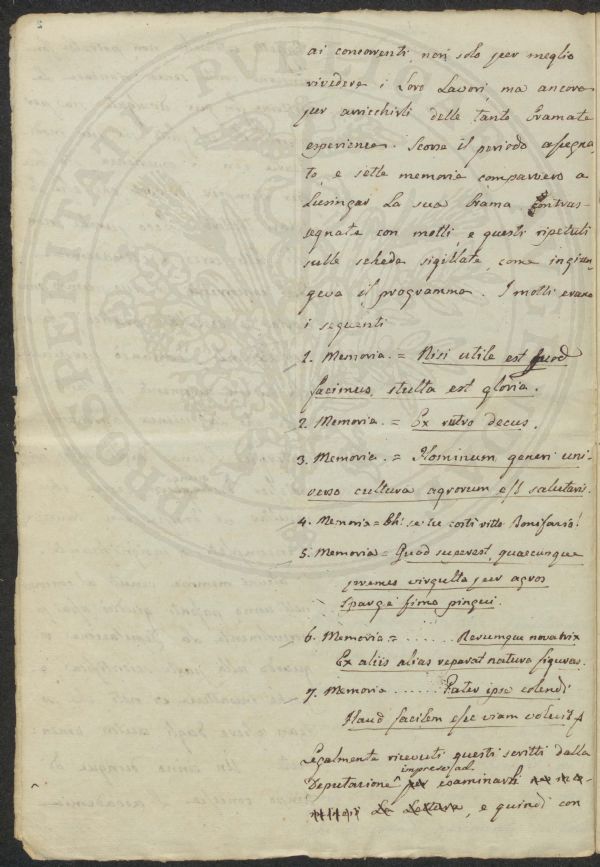 ai concorrenti, non solo per meglio
rivedere i Loro Lavori, ma ancora
per arricchirli delle tanto bramate
esperienze. Scorse il periodo assegna-
to, e sette memorie comparvero a
Lusingar La sua brama contras-
segnate con motti, e questi ripetuti
sulle schede sigillate, come ingiun-
geva il programma. I motti erano
i seguenti
1. Memoria. = Nisi utile est quod
facimus, stulta est gloria.
2. Memoria. = Ex rutro decus.
3. Memoria. = Hominum generi uni-
verso cultura agrorum est salutaris.
4. Memoria = Eh! se tu costì vitto Bonifazio!
5. Memoria = Quod superest, quaecunque
premes virgulta per agros
Sparge fimo pingui.
6. Memoria = ...... Rerumque novatrix
Ex aliis alias reparat natura figuras.
7. Memoria ...... Pater ipse colendi
Haud facilem esse viam voluit
Legalmente ricevuti questi scritti dalla
Deputazione impresesi ad esaminarli
La Lettura, e quindi con
PROSPERITATI PUBLICAE